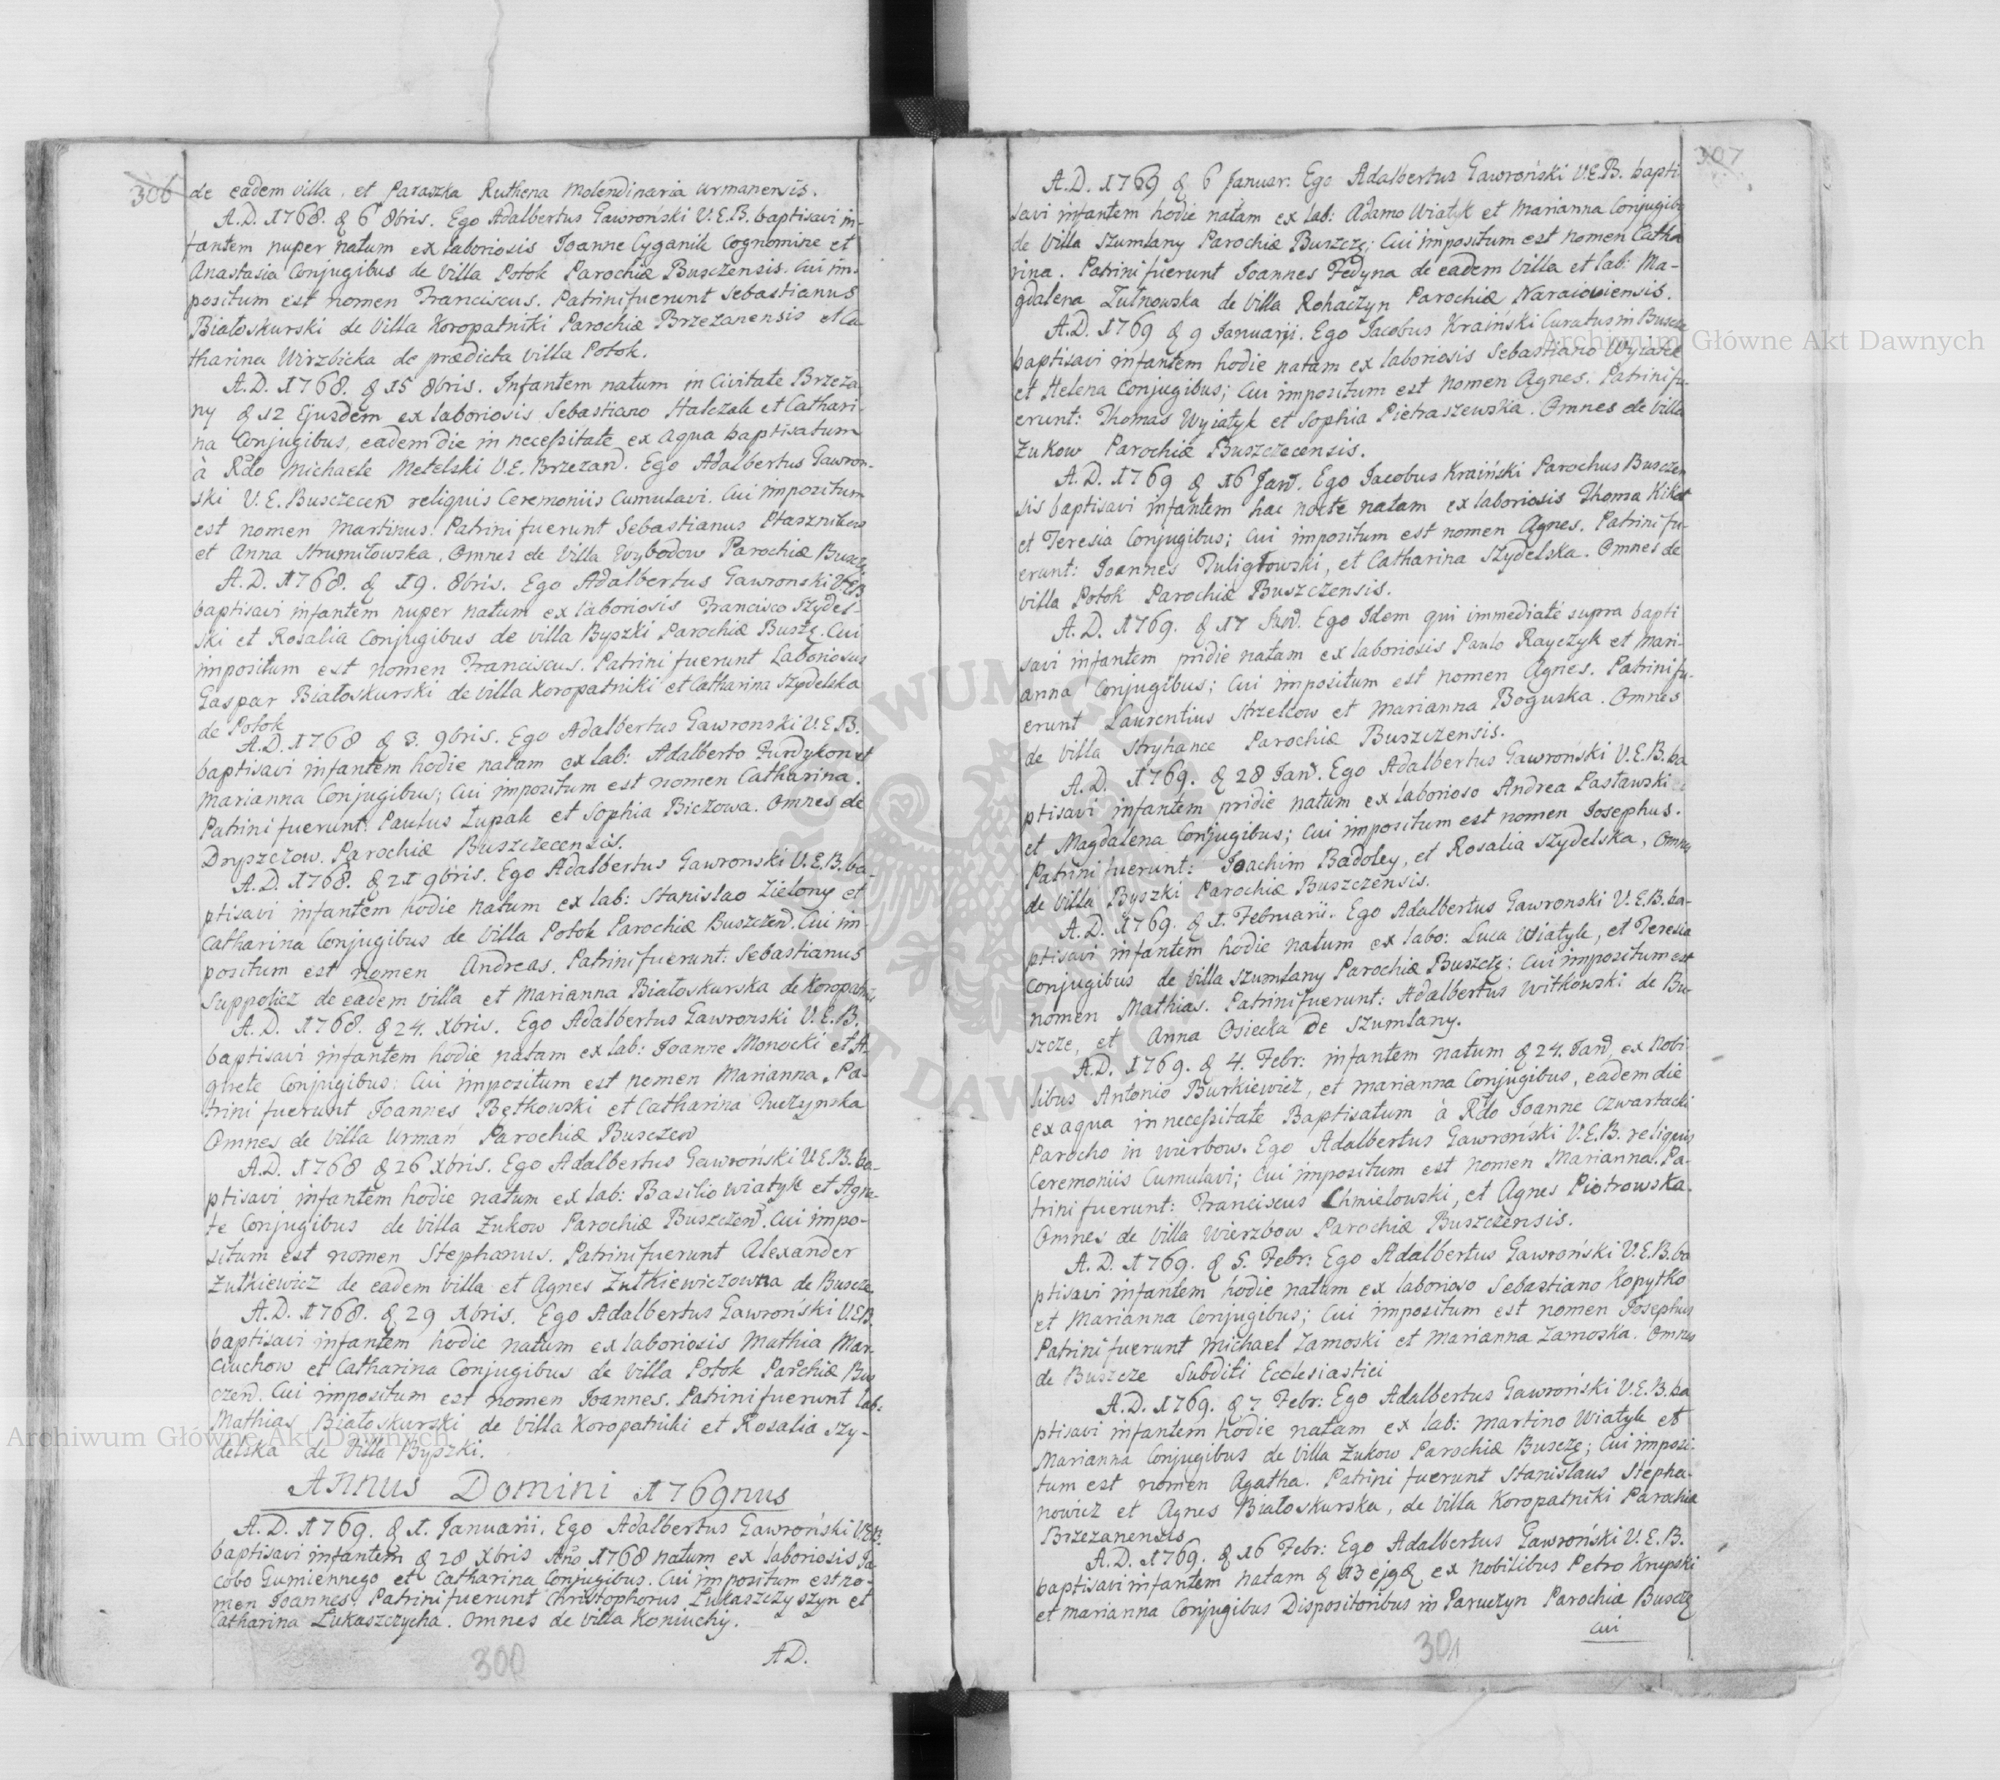 306
de eadem villa. et Paraszka Ruthena Molendinaria Urmanensis.
A.D. 1768. & 6 8bris. Ego Adalbertus Gawroński V.E.B. baptisavi in-
fantem nuper natum ex laboriosis Joanne Cyganik Cognomine et
Anastasia Conjugibus de villa Potok Parochiæ Busczensis. Cui im-
positum est nomen Franciscus. Patrini fuerunt Sebastianus
Białoskurski de villa Koropatniki Parochiæ Brzezanensis et Ca-
tharina Wirzbicka de prædicta villa Potok.
A.D. 1768. & 15 8bris. Infantem natum in Civitate Brzeza
ny & 12 Ejusdem ex laboriosis Sebastiano Halczak et Cathari-
na Conjugibus, eadem die in necessitate ex aqua baptisatum
à Rdo Michaele Metelski V.E. Brzezan. Ego Adalbertus Gawron-
ski V.E. Busczecen reliquis Ceremoniis Cumulavi. Cui impositum
est nomen Martinus. Patrini fuerunt Sebastianus Ptasznikow
et Anna Strumiłowska. Omnes de villa Wybodow Parochiæ Buscze
A.D. 1768. & 19. 8bris. Ego Adalbertus Gawronski V.E.B.
baptisavi infantem nuper natum ex laboriosis Francisco Szydel-
ski et Rosalia Conjugibus de villa Byszki Parochiæ Buszę. Cui
impositum est nomen Franciscus. Patrini fuerunt Laboriosus
Gaspar Białoskurski de villa Koropatniki et Catharina Szydelska
de Potok
A.D. 1768 & 3. 9bris. Ego Adalbertus Gawronski V.E.B.
baptisavi infantem hodie natam ex lab: Adalberto Furdykon et
Marianna Conjugibus; Cui impositum est nomen Catharina.
Patrini fuerunt: Paulus Łupak et Sophia Biczowa. Omnes de
Dryszczow. Parochiæ Buszczecensis.
A.D. 1768. & 21 9bris. Ego Adalbertus Gawronski V.E.B. ba-
ptisavi infantem hodie natum ex lab: Stanislao Zielony et
Catharina Conjugibus de villa Potok Parochiæ Buszczen. Cui im-
positum est nomen Andreas. Patrini fuerunt: Sebastianus
Suppolicz de eadem villa et Marianna Białoskurska de Koropatnik
A.D. 1768. & 24. Xbris. Ego Adalbertus Gawronski V.E.B.
baptisavi infantem hodie natam ex lab: Joanne Monocki et A-
gnete Conjugibus: Cui impositum est nomen Marianna. Pa-
trini fuerunt Joannes Bętkowski et Catharina Tuczynska
Omnes de villa Urmań Parochiæ Busczen
A.D. 1768 & 26 Xbris. Ego Adalbertus Gawroński V.E.B. ba-
ptisavi infantem hodie natum ex lab: Basilio Wiatyk et Agne-
te Conjugibus de villa Żukow Parochiæ Buszczen. Cui impo-
situm est nomen Stephanus. Patrini fuerunt Alexander
Żutkiewicz de eadem villa et Agnes Żutkiewiczowna de Buscze.
A.D. 1768. & 29 Xbris. Ego Adalbertus Gawroński V.E.B.
baptisavi infantem hodie natum ex laboriosis Mathia Mar-
ciuchow et Catharina Conjugibus de villa Potok Parchiæ Bus
czen. Cui impositum est nomen Joannes. Patrini fuerunt Lab:
Mathias Białoskurski de villa Koropatniki et Rosalia Szy-
delska de villa Byszki.
Annus Domini 1769nus
A.D. 1769. & 1. Januarii. Ego Adalbertus Gawroński V.E.B.
baptisavi infantem & 28 Xbris Ano 1768 natum ex laboriosis Ja-
cobo Gumiennego et Catharina Conjugibus. Cui impositum est no-
men Joannes. Patrini fuerunt Christophorus Łukaszczyszyn et
Catharina Łukaszczycha. Omnes de villa Koniuchy.
AD.
300
307
A.D. 1769 & 6 Januar: Ego Adalbertus Gawroński V.E.B. bapti-
savi infantem hodie natam ex lab: Adamo Wiatyk et Marianna Conjugibus
de villa Szumlany Parochiæ Buszczę; Cui impositum est nomen Catha
rina. Patrini fuerunt Joannes Fedyna de eadem villa et lab: Ma-
gdalena Zułnowska de villa Rohaczyn Parochiæ Naraioviensis.
A.D. 1769 & 9 Januarii. Ego Jacobus Kraiński Curatus in Buscze
baptisavi infantem hodie natam ex laboriosis Sebastiano Wyiatek
et Helena Conjugibus; Cui impositum est nomen Agnes. Patrini fu-
erunt: Thomas Wyiatyk et Sophia Pietraszewska. Omnes de villa
Żukow Parochiæ Buszczecensis.
A.D. 1769 & 16 Jan. Ego Jacobus Kraiński Parochus Busczen
sis baptisavi infantem hac nocte natam ex laboriosis Thoma Kikot
et Teresia Conjugibus; Cui impositum est nomen Agnes. Patrini fu-
erunt: Joannes Tuligłowski, et Catharina Szydelska. Omnes de
villa Potok Parochiæ Buszczensis.
A.D. 1769. & 17 Jan. Ego Idem qui immediaté supra bapti
savi infantem pridie natam ex laboriosis Paulo Rayczyk et Mari-
anna Conjugibus; Cui impositum est nomen Agnes. Patrini fu-
erunt Laurentius Strzelcow et Marianna Boguska. Omnes
de villa Stryhance Parochiæ Buszczensis.
A.D. 1769. & 28 Jan. Ego Adalbertus Gawroński V.E.B. ba
ptisavi infantem pridie natum ex laborioso Andrea Pasławski
et Magdalena Conjugibus; Cui impositum est nomen Josephus.
Patrini fuerunt: Joachim Badoley, et Rosalia Szydelska, Omnes
de villa Byszki Parochiæ Buszczensis.
A.D. 1769. & 1. Februarii. Ego Adalbertus Gawronski V.E.B. ba-
ptisavi infantem hodie natum ex labo: Luca Wiatyk, et Teresia
Conjugibus de villa Szumlany Parochiæ Buszczę; Cui impositum est
nomen Mathias. Patrini fuerunt: Adalbertus Witkowski de Bu-
szcze, et Anna Osiecka de Szumlany.
A.D. 1769. & 4. Febr: infantem natum & 24. Jan, ex Nobi-
libus Antonio Burkiewicz, et Marianna Conjugibus, eadem die
ex aqua in necessitate Baptisatum à Rdo Joanne Czwartacki
Parocho in Wierbow. Ego Adalbertus Gawroński V.E.B. reliquis
Ceremoniis Cumulavi; Cui impositum est nomen Marianna. Pa-
trini fuerunt: Franciscus Chmielowski, et Agnes Piotrowska.
Omnes de villa Wierzbow Parochiæ Buszczensis.
A.D. 1769. & 5. Febr: Ego Adalbertus Gawroński V.E.B. ba
ptisavi infantem hodie natum ex laborioso Sebastiano Kopytko
et Marianna Conjugibus; Cui impositum est nomen Josephus
Patrini fuerunt Michael Zamoski et Marianna Zamoska. Omnes
de Buszcze Subditi Ecclesiastici
A.D. 1769. & 7 Febr: Ego Adalbertus Gawroński V.E.B. ba
ptisavi infantem hodie natam ex lab: Martino Wiatyk et
Marianna Conjugibus de villa Żukow Parochiæ Busczę; Cui imposi-
tum est nomen Agatha. Patrini fuerunt Stanislaus Stepha-
nowicz et Agnes Białoskurska, de villa Koropatniki Parochiæ
Brzezanensis
A.D. 1769. & 16 Febr: Ego Adalbertus Gawroński V.E.B.
baptisavi infantem natam & 13 ejq& ex nobilibus Petro Krupski
et Marianna Conjugibus Dispositoribus in Paruczyn Parochiæ Buscze
cui
301
Archiwum Główne Akt Dawnych
Archiwum Główne Akt Dawnych